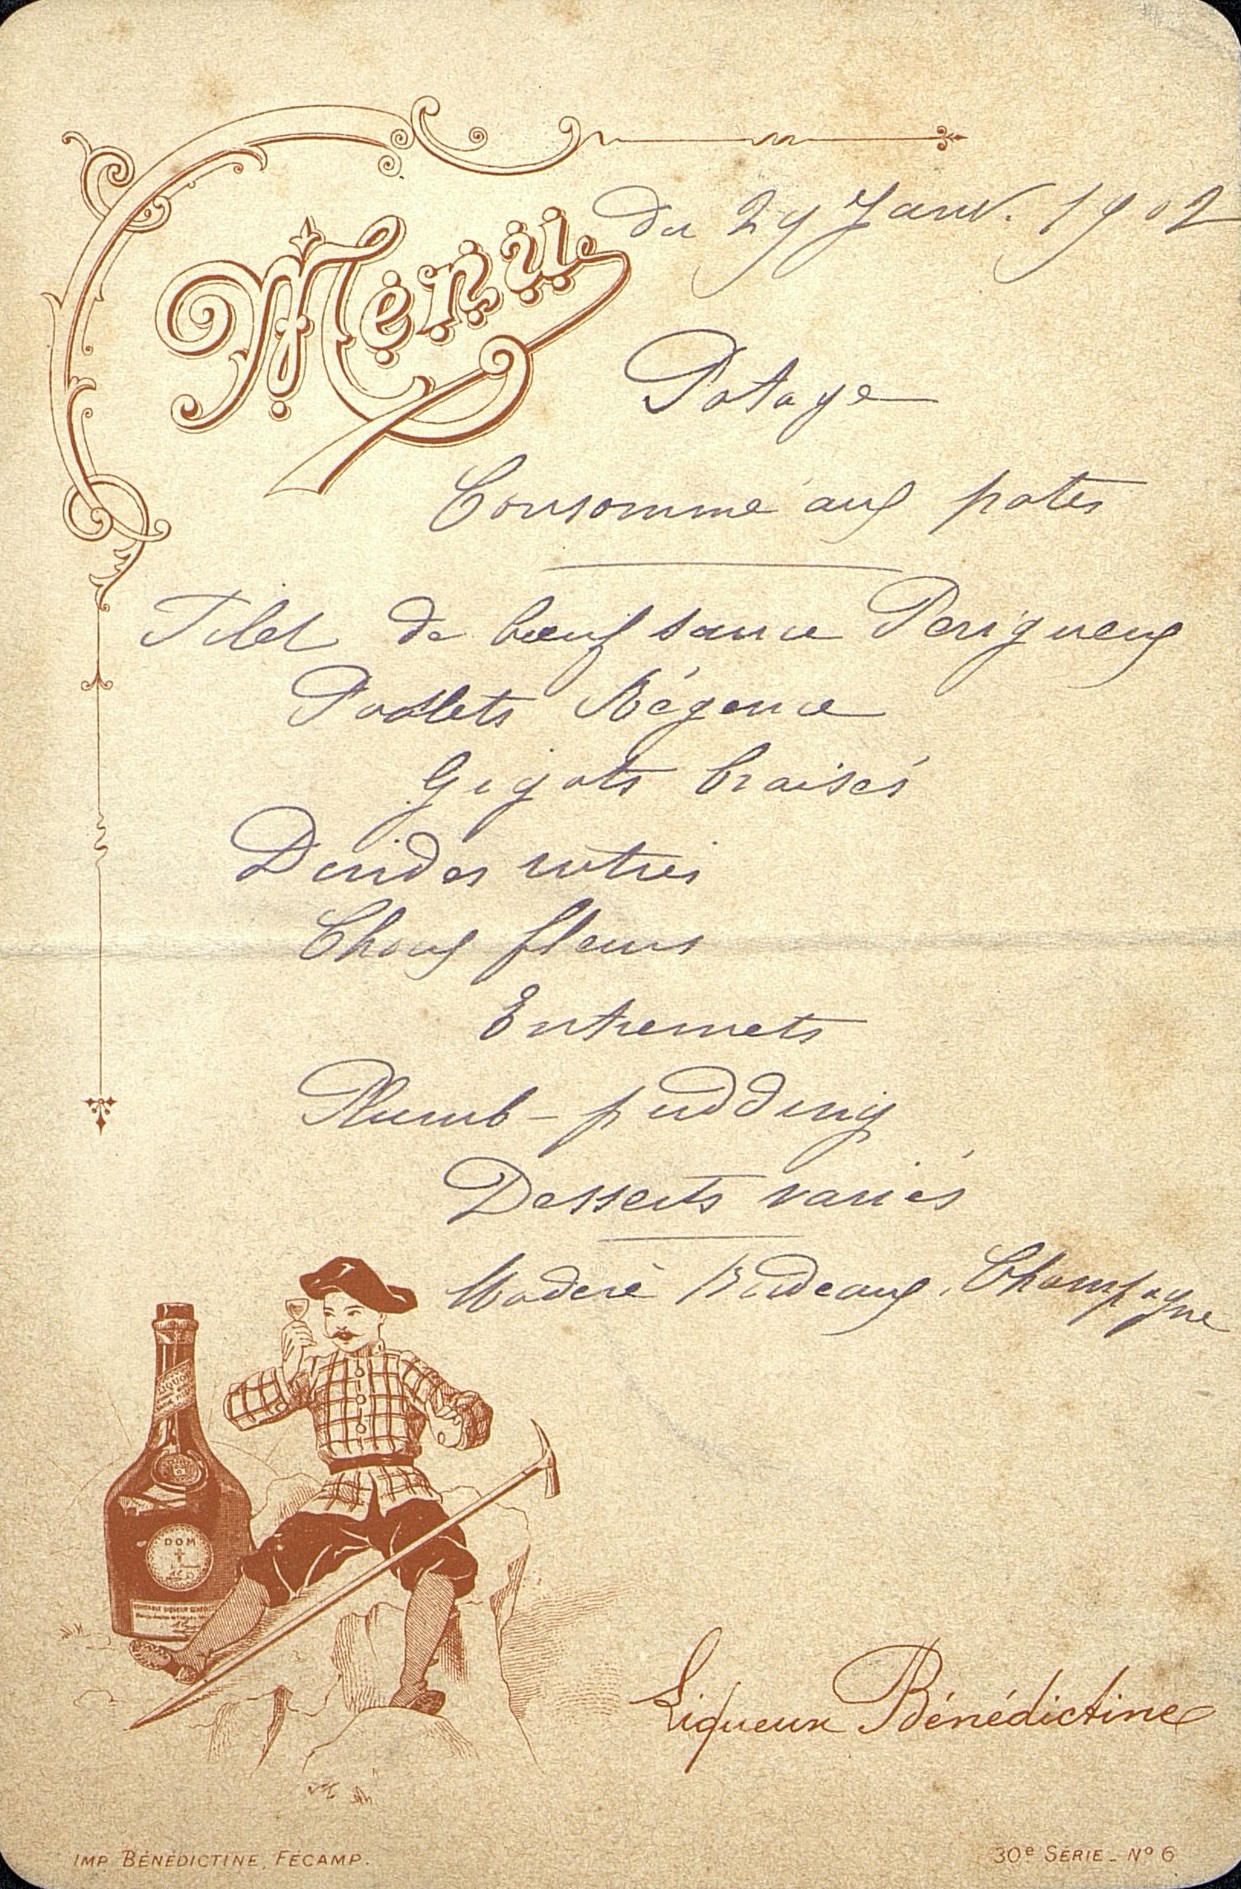 Menu du 29 Janv. 1902
Potage
Consommé aux pates
Filet de bœuf sauce Perigueux
Poulets Régence
Gigots braisés
Dindes roties
Choux fleurs
Entremets
Plumb-pudding
Desserts variés
Madère Bordeaux. Champagne
LIQUO
DOM
VÉRITABLE LIQUEUR BÉNÉD
Liqueur Bénédictine
IMP. BÉNÉDICTINE, FÉCAMP.
30e SÉRIE - No 6